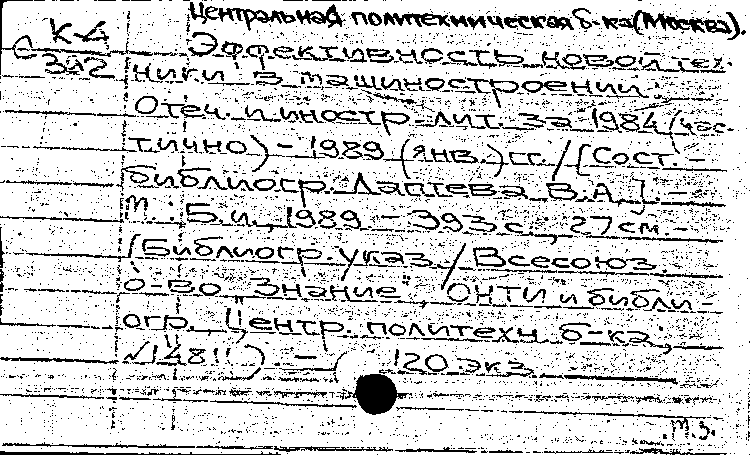 Центральная политехническая б-ка (Москва).
К-4
С 3н2
Эффективность новой тех-
ники в машиностроении:
Отеч. и иностр. лит. за 1984 (час-
тично) - 1989 (янв.) гг. / [Сост. -
библиогр. Лаптева В.А.]. -
М.: Б.и., 1989. - 393 с.; 27 см. -
(Библиогр. указ. / Всесоюз.
о-во "Знание", ОНТИ и библи-
огр., Центр. политехн. б-ка;
№148!!) . - 120 экз.
м.з.